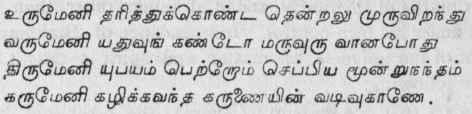 உருமேனி தரித்துக்கொண்ட தென்றலு முருவிறந்து
வருமேனி யதுவுங் கண்டோ மருவுரு வானபோது
திருமேனி யுபயம் பெற்றோம் செப்பிய மூன்றுநந்தம்
கருமேனி கழிக்கவந்த கருணையின் வடிவுகாணே.